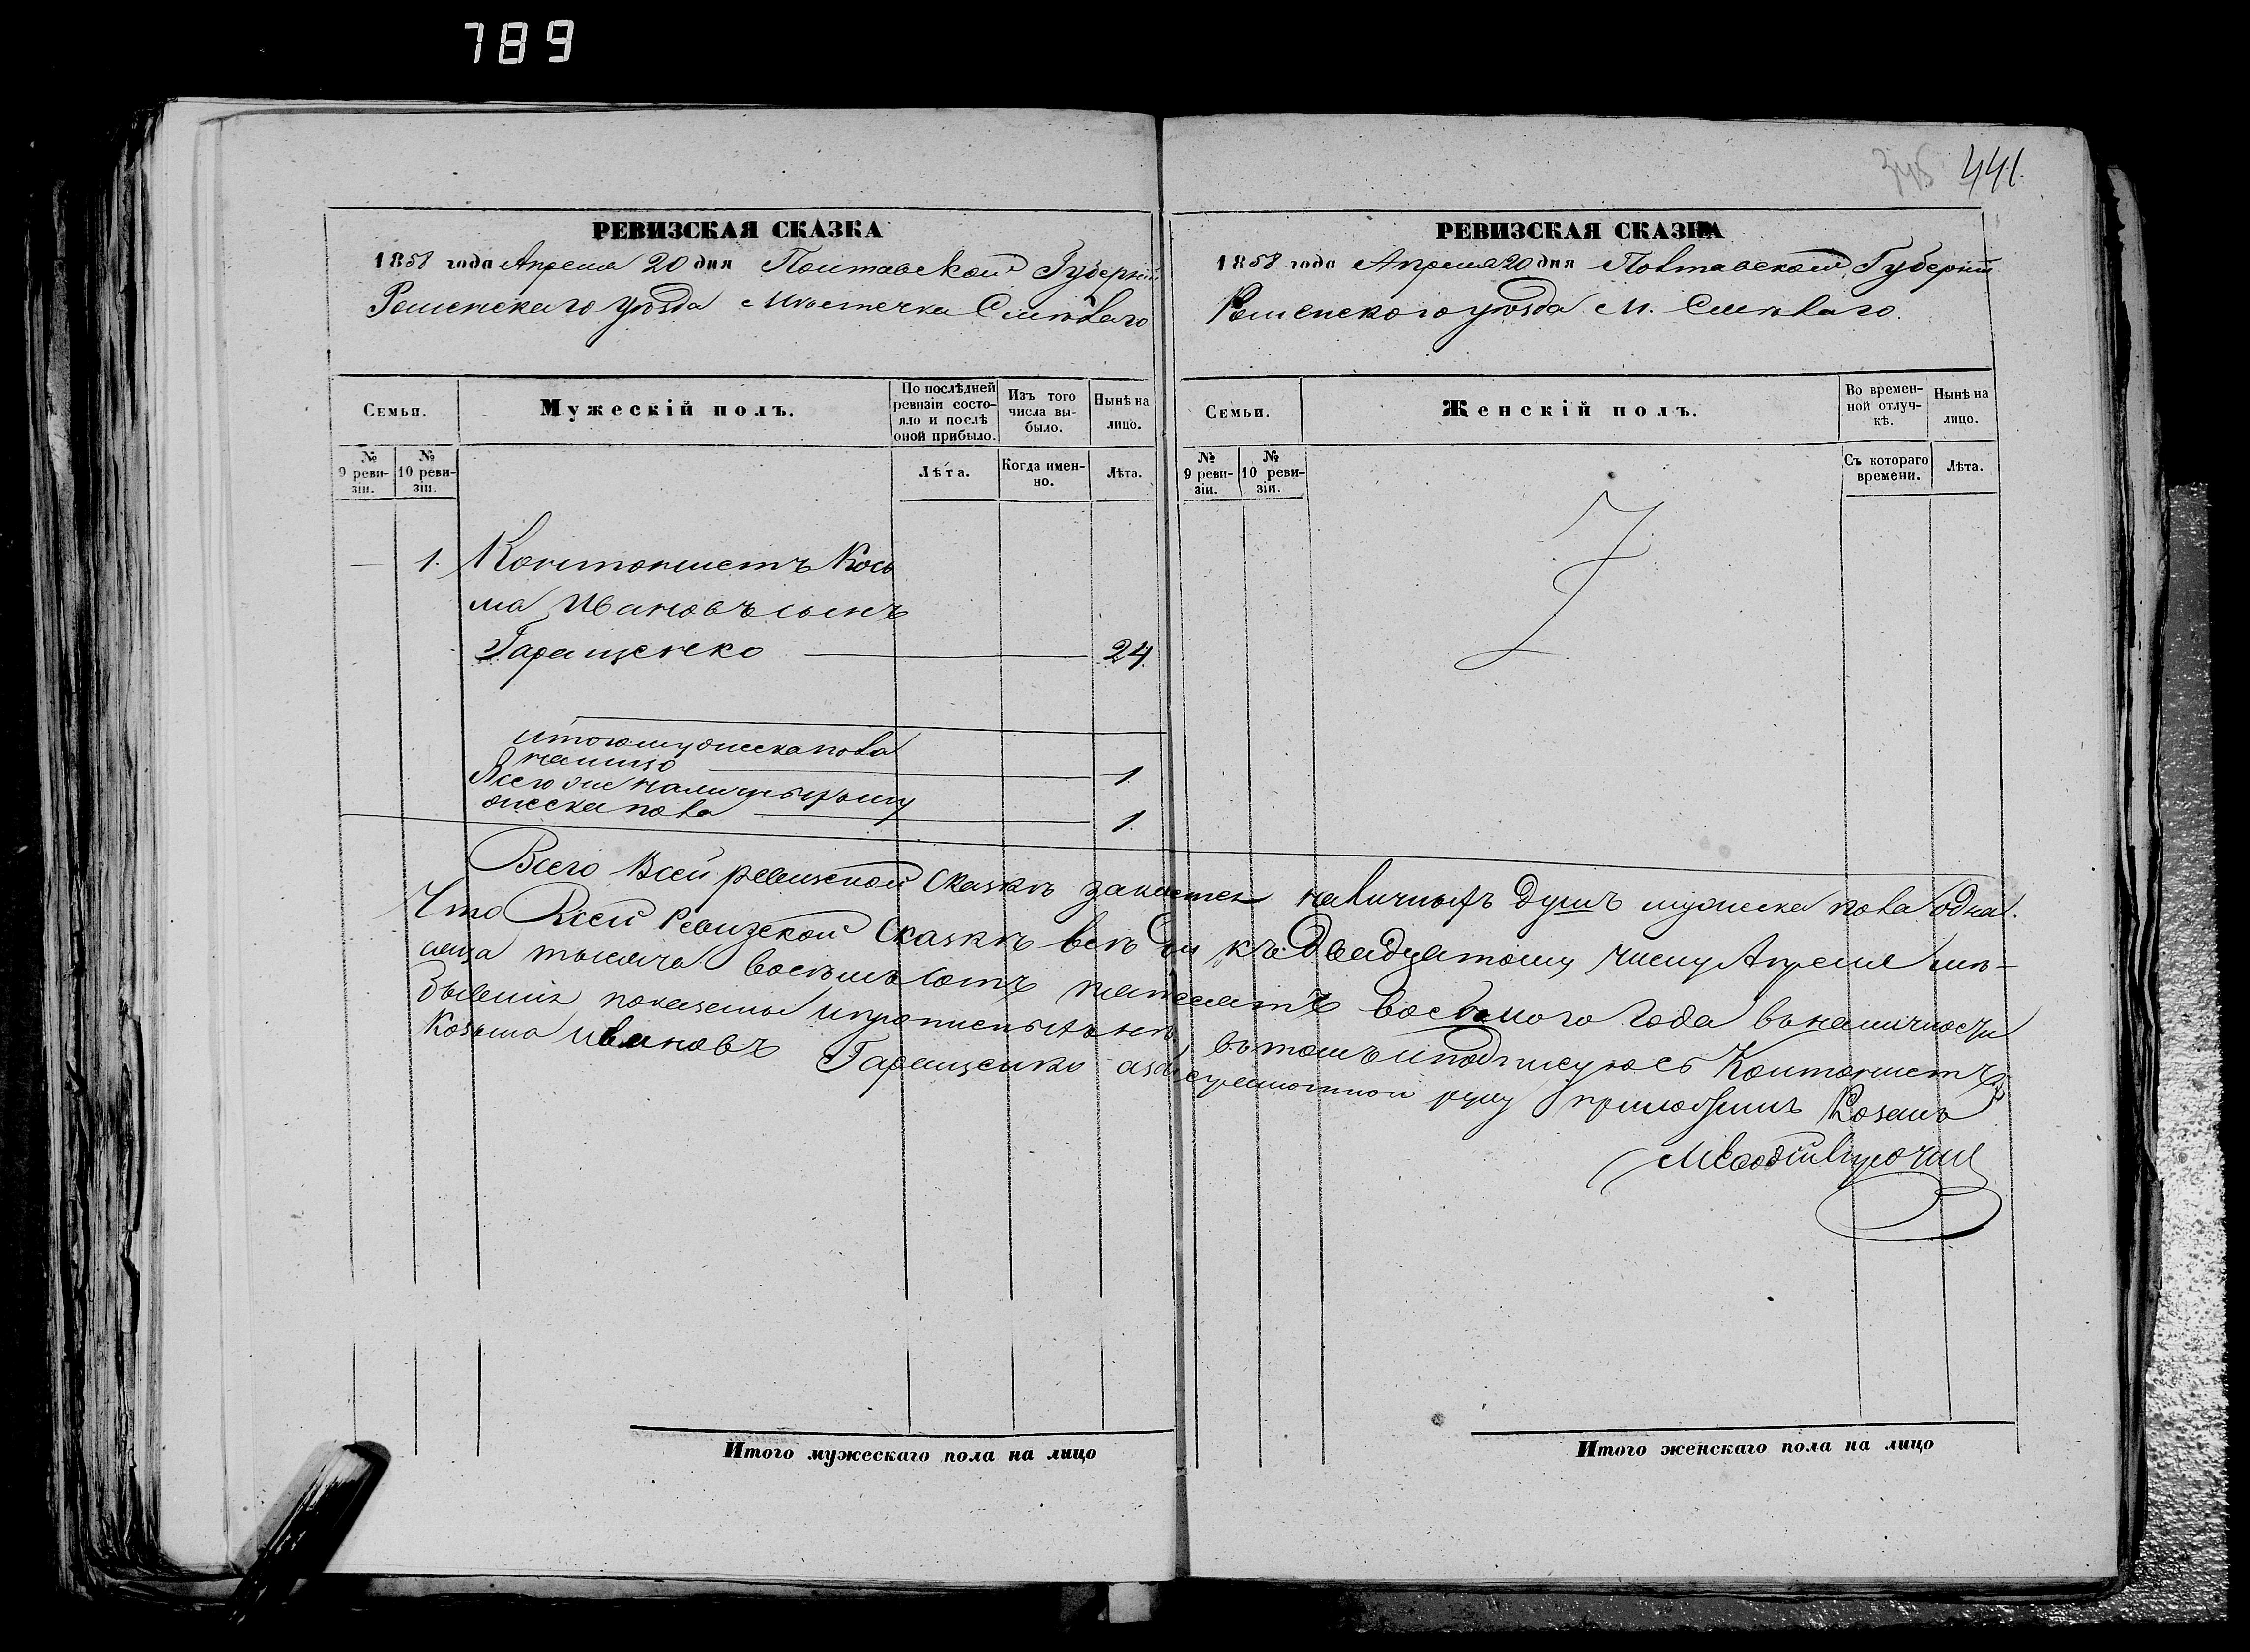 789
441.
РЕВИЗСКАЯ СКАЗКА
1858 года Апреля 20 дня Полтавской Губерніи
Роменскаго уѣзда Мѣстечка Смѣлаго
Семьи.
Мужескій полъ.
По послѣдней ревизіи состояло и послѣ оной прибыло.
Изъ того числа выбыло.
Нынѣ на лицо.
№ 9 ревизіи.
№ 10 ревизіи.
Лѣта.
Когда именно.
Лѣта.
— 1. Кантонистъ Кось
ма Ивановъ сынъ
Гаращенко 24
Итого мужеска пола
налицо 1
Всего же наличныхъ му
жеска пола 1.
РЕВИЗСКАЯ СКАЗКА
1858 года Апреля 20 дня Полтавской Губерніи
Роменского уѣзда М. Смѣлаго.
Семьи.
Женскій полъ.
Во временной отлучкѣ.
Нынѣ на лицо.
№ 9 ревизіи.
№ 10 ревизіи.
Съ котораго времени.
Лѣта.
Всего Всей ревизской Сказкѣ наличныхъ душъ мужеска пола одна.
Что Всей Ревизской Сказкѣ всѣ къ Двадцатому числу Апреля мѣ-
сяца тысяча восемьсотъ пятьдесятъ восьмого года вналичности
бывшія показаны втомъ иподписуюсь Кантонистъ
Козьма Ивановъ Гаращенко руку приложилъ Козакъ
Итого мужескаго пола на лицо
Итого женскаго пола на лицо